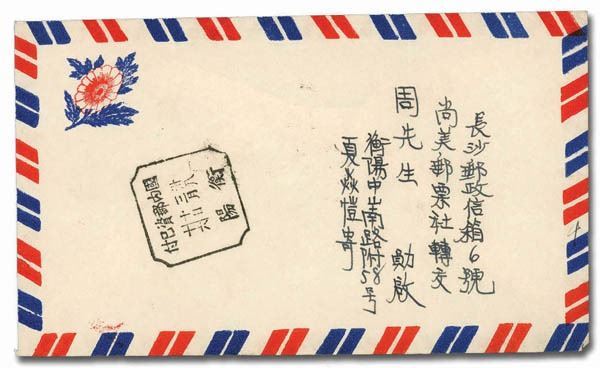 長沙郵政信箱6號
尚美郵票社轉交
周先生 勛啟
衡陽中南路附58号
夏焱愷寄
衡陽
國內郵資已付